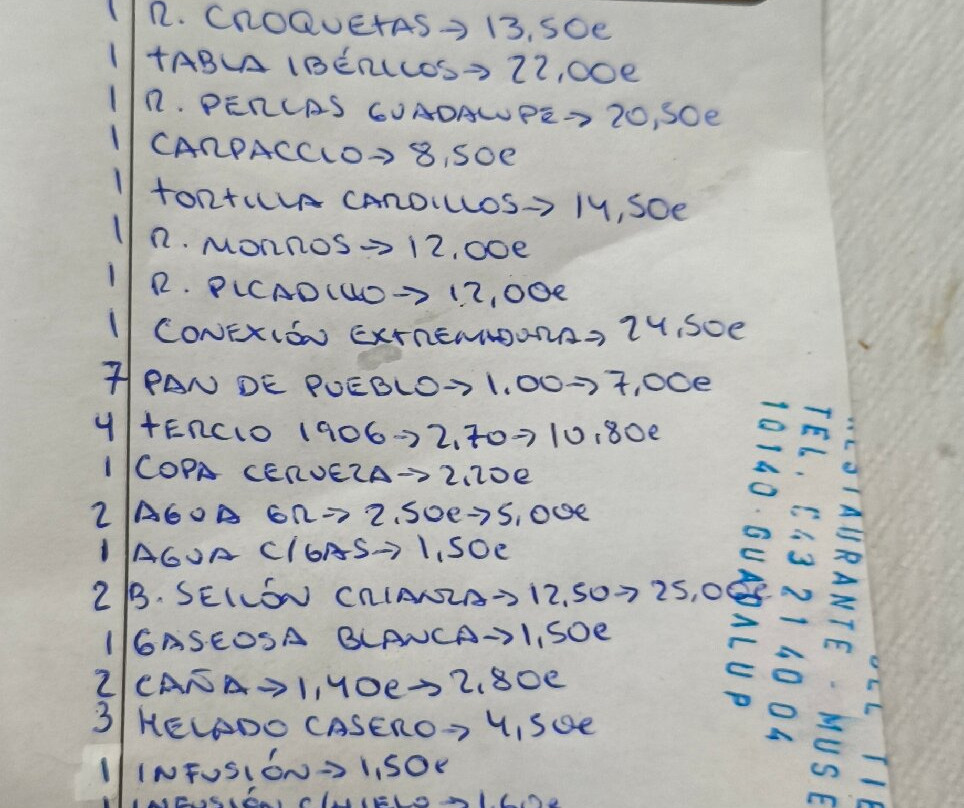 1 R. CROQUETAS → 13,50e
1 TABLA IBÉRICOS → 22,00e
1 R. PERLAS GUADALUPE → 20,50e
1 CARPACCIO → 8,50e
1 TORTILLA CARDILLOS → 14,50e
1 R. MORROS → 12,00e
1 R. PICADILLO → 12,00e
1 CONEXIÓN EXTREMADURA → 24,50e
7 PAN DE PUEBLO → 1.00 → 7,00e
4 TERCIO 1906 → 2,70 → 10,80e
1 COPA CERVEZA → 2,20e
2 AGUA GR → 2,50e → 5,00e
1 AGUA C/GAS → 1,50e
2 B. SEILÓN CRIANZA → 12,50 → 25,00e
1 GASEOSA BLANCA → 1,50e
2 CAÑA → 1,40e → 2,80e
3 HELADO CASERO → 4,50e
1 INFUSIÓN → 1,50e
1 INFUSIÓN C/HIELO → 1,60e
RESTAURANTE - MUSE
TEL. 643 21 40 04
10140-GUADALUP